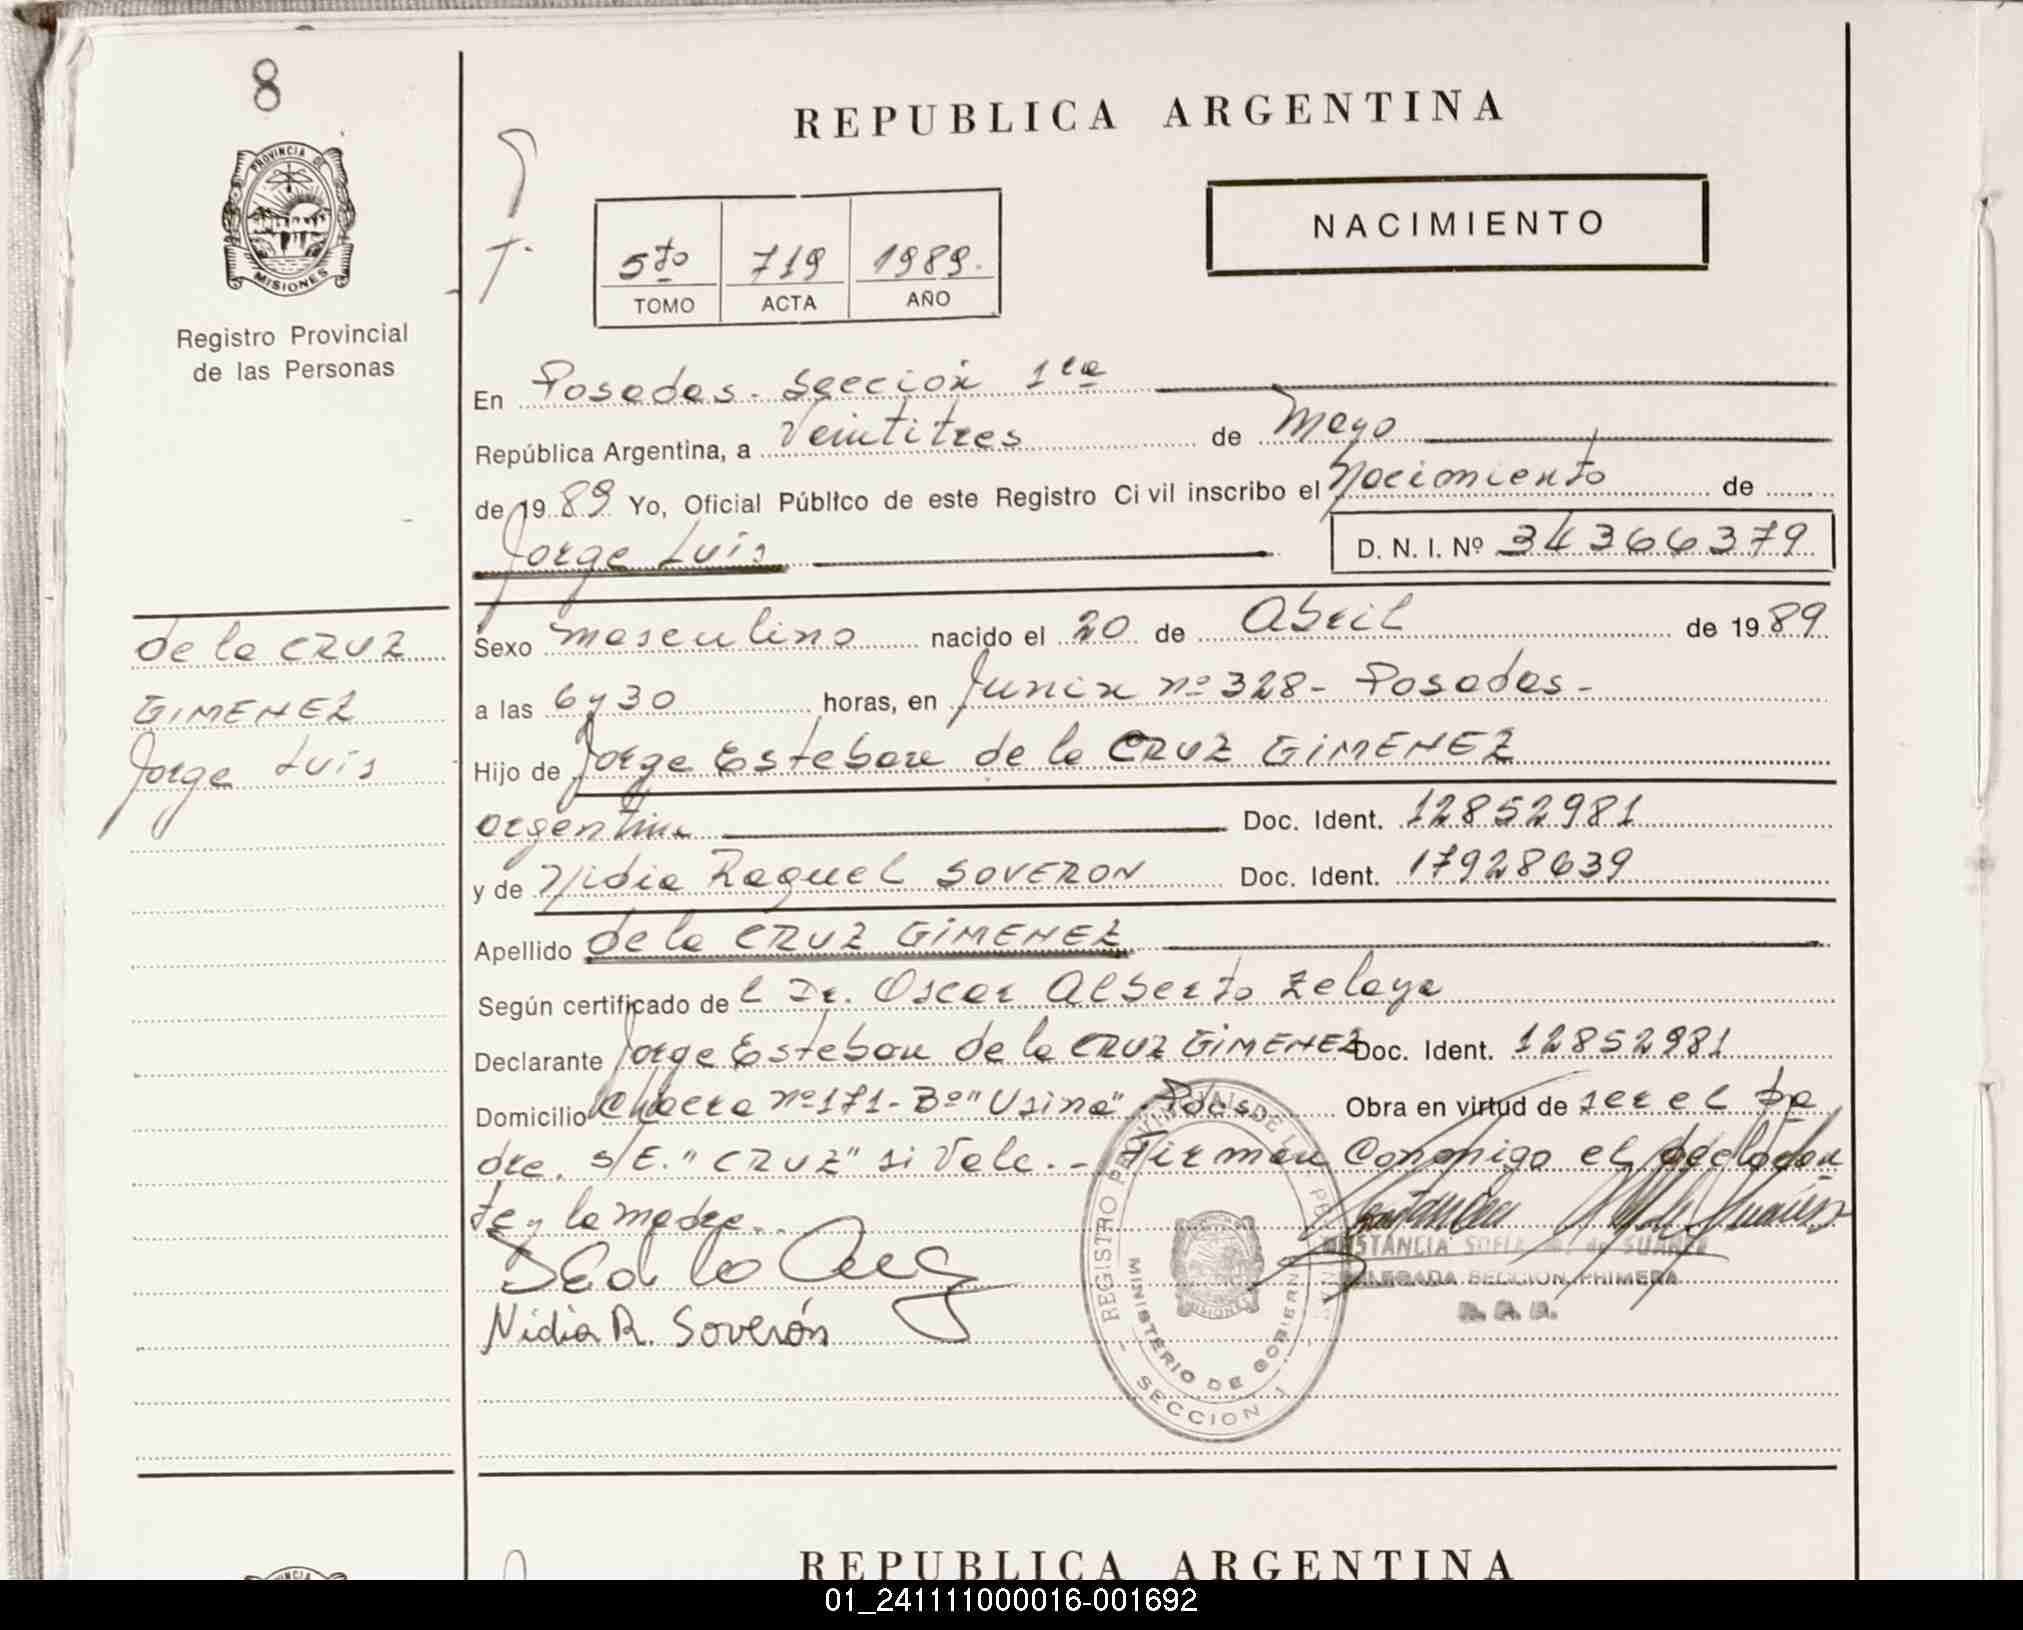 8
PROVINCIA DE
MISIONES
Registro Provincial
de las Personas
de la CRUZ
GIMENEZ
Jorge Luis
REPUBLICA ARGENTINA
NACIMIENTO
5to 719 1989.
TOMO ACTA AÑO
En Posadas - Sección 1ra
República Argentina, a Veintitres de Mayo
de 1989 Yo, Oficial Público de este Registro Civil inscribo el Nacimiento de
Jorge Luis D. N. I. Nº 34366379
Sexo masculino nacido el 20 de Abril de 1989
a las 6 y 30 horas, en Junin nº 328 - Posadas -
Hijo de Jorge Esteban de la CRUZ GIMENEZ
argentino Doc. Ident. 12852981
y de Nidia Raquel SOVERON Doc. Ident. 17928639
Apellido de la CRUZ GIMENEZ
Según certificado de l Dr. Oscar Alberto Zelaya
Declarante Jorge Esteban de la CRUZ GIMENEZ Doc. Ident. 12852981
Domicilio Chacra nº 171 - Bº "Usina" - Pdas. Obra en virtud de ser el pa
dre. S/E. "CRUZ" si Vale. - Firman conmigo el declaran
te y la madre.
Nidia R. Soverón
REGISTRO PROVINCIAL DE LAS PERSONAS
MINISTERIO DE GOBIERNO
MISIONES
SECCION 1
DELEGADA SECCION PRIMERA
REPUBLICA ARGENTINA
01_241111000016-001692